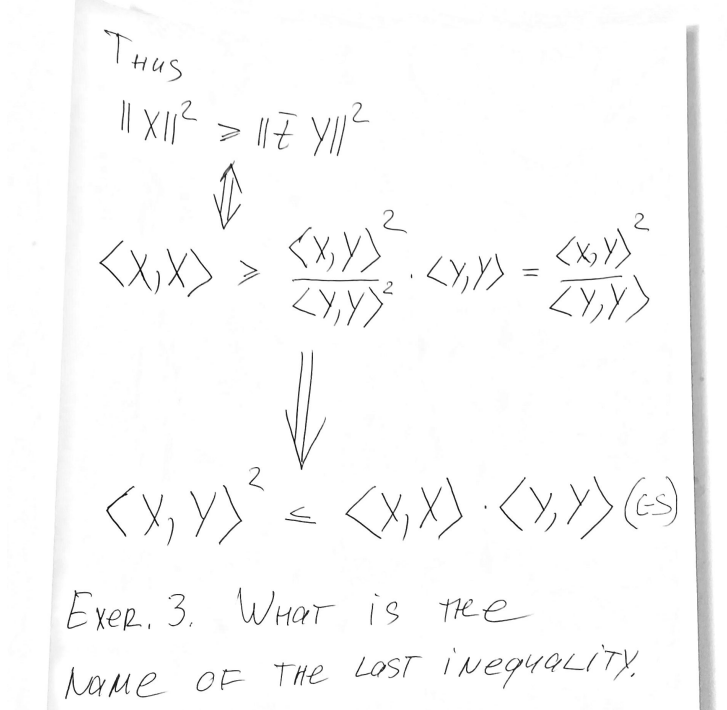 Thus
‖X‖² ⩾ ‖z̄ Y‖²
⇕
⟨X,X⟩ ⩾ ⟨X,Y⟩² / ⟨Y,Y⟩² · ⟨Y,Y⟩ = ⟨X,Y⟩² / ⟨Y,Y⟩
⇓
⟨X,Y⟩² ≤ ⟨X,X⟩ · ⟨Y,Y⟩ (C-S)
Exer. 3. What is the
name of the last inequality.